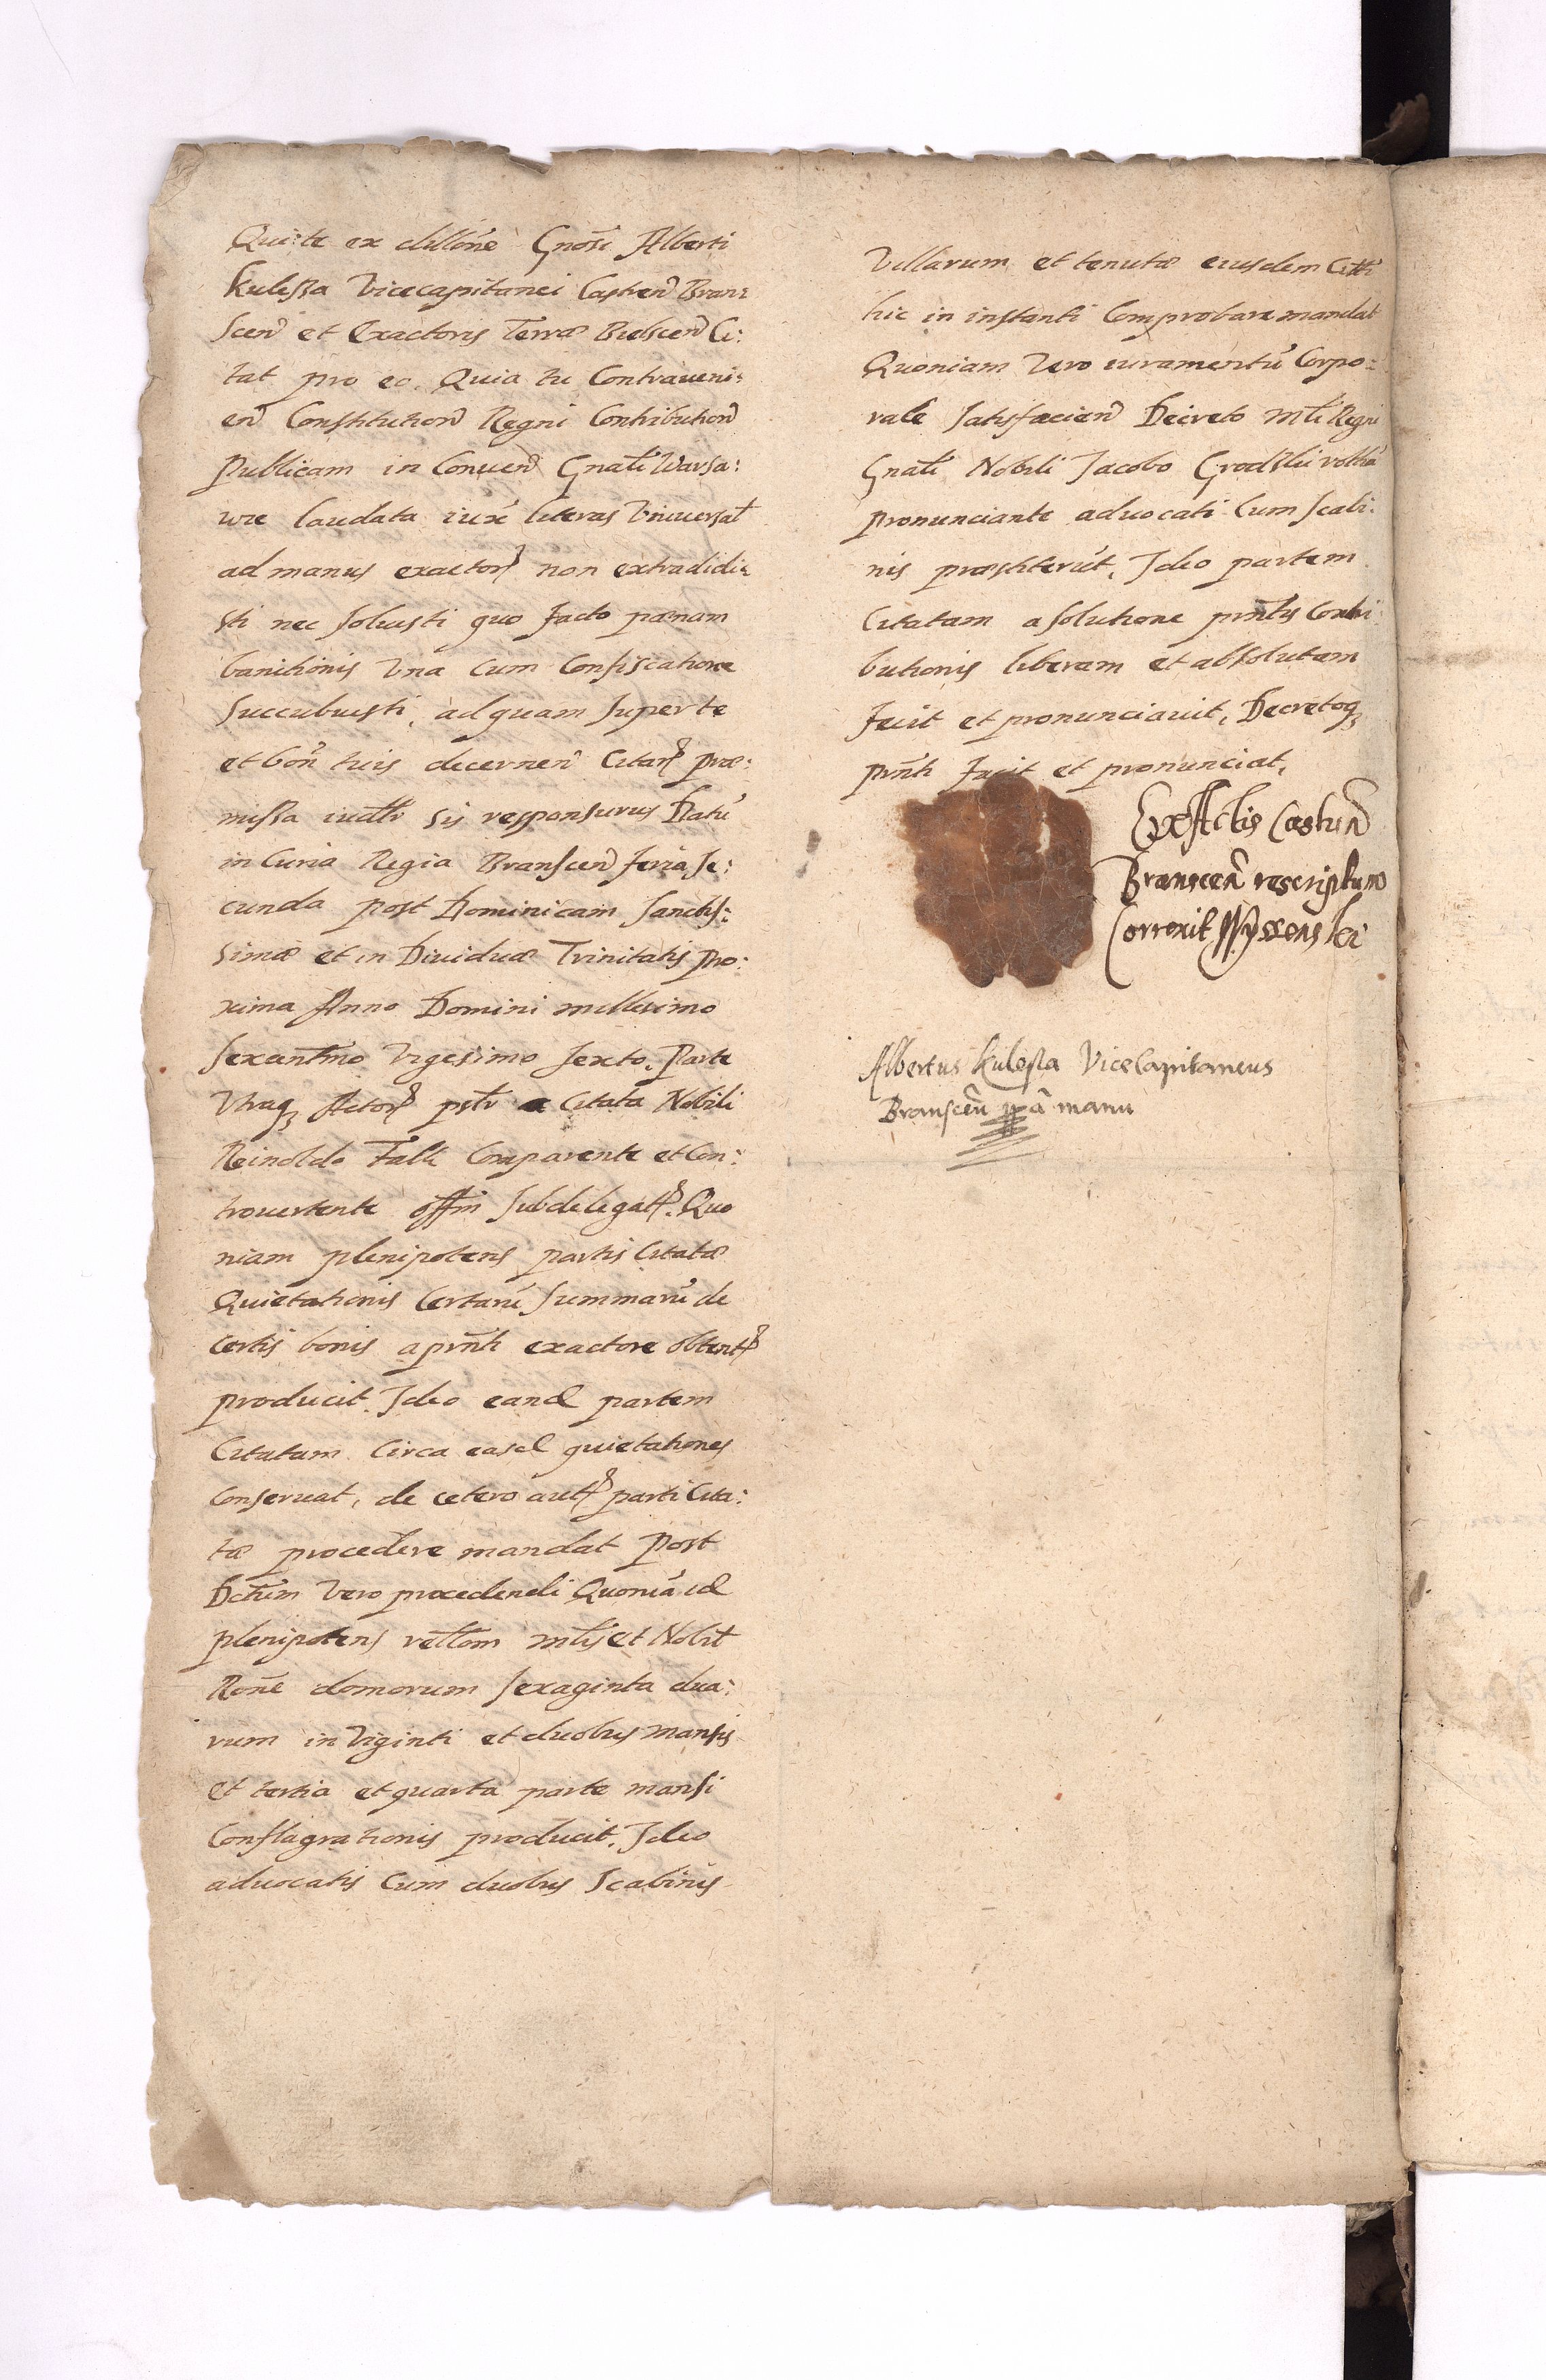 Qui te ex dellõne Gnosi Alberti
Kulessa Vicecapitanei Castren Bran:
scen et Exactoris Terræ Bielscen Ci:
tat pro eo. Quia tu Contraueni:
en Constitution Regni Contribution
Publicam in Conuen Gnali Warsa:
wiæ laudata iux literas Vniuersal
ad manus exactor non extradidi:
sti nec soluisti quo facto pænam
banitionis vna cum Confiscatione
succubuisti, ad quam super te
et bon tuis decernen Citar præ:
missa iudltr sis responsurus Datũ
in Curia Regia Branscen feria se:
cunda post Dominicam Sanctis:
simæ et in Diuiduæ Trinitatis pro:
xima Anno Domini millesimo
sexcentmo Vigesimo sexto. Parte
vtraq Actor pstr a Citata Nobili
Reinoldo Falk Comparente et Con:
trouertente offm subdelegat. Quo
niam plenipotens partis Citatæ
Quietationis Certarũ summarũ de
certis bonis a prnti exactore obtent
producit. Ideo eand partem
Citatam Circa easd quietationes
Conseruat, de cetero aut parti Cita:
tæ procedere mandat Post
Dctum vero procedendi Quoniã id
plenipotens reltom mlis et Nobil
Rone domorum sexaginta dua:
rum in viginti et duobus mansis
et tertia et quarta parte mansi
Conflagrationis producit. Ideo
aduocatis Cum duobus Scabinis
Villarum et tenutæ eiusdem Citti
hic in instanti Comprobare mandat
Quoniam vero iuramentũ Corpo:
rale satisfacien Decreto mli Regni
Gnali Nobili Jacobo Grodzki rothã
pronunciante aduocati Cum scabi:
nis præstiterũt, Ideo partem
Citatam a solutione prntis Contri
butionis liberam et absolutam
fecit et pronunciauit, Decretoq
prnti facit et pronunciat,
Ex Actis Castren
Branscen rescriptum
Correxit Wyszenski
Albertus Kulessa ViceCapitaneus
Branscen ppã manu